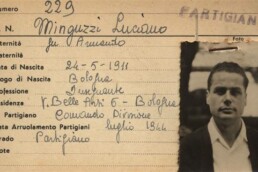 numero 229
PARTIGIAN
N. Minguzzi Luciano
aternità fu Armando
aternità
ata di Nascita 24-5-1911
ogo di Nascita Bologna
rofessione Insegnante
esidenza V. Belle Arti 6 - Bologna
Partigiano Comando Divisione
ata Arruolamento Partigiani luglio 1944
redo Partigiano
Foto